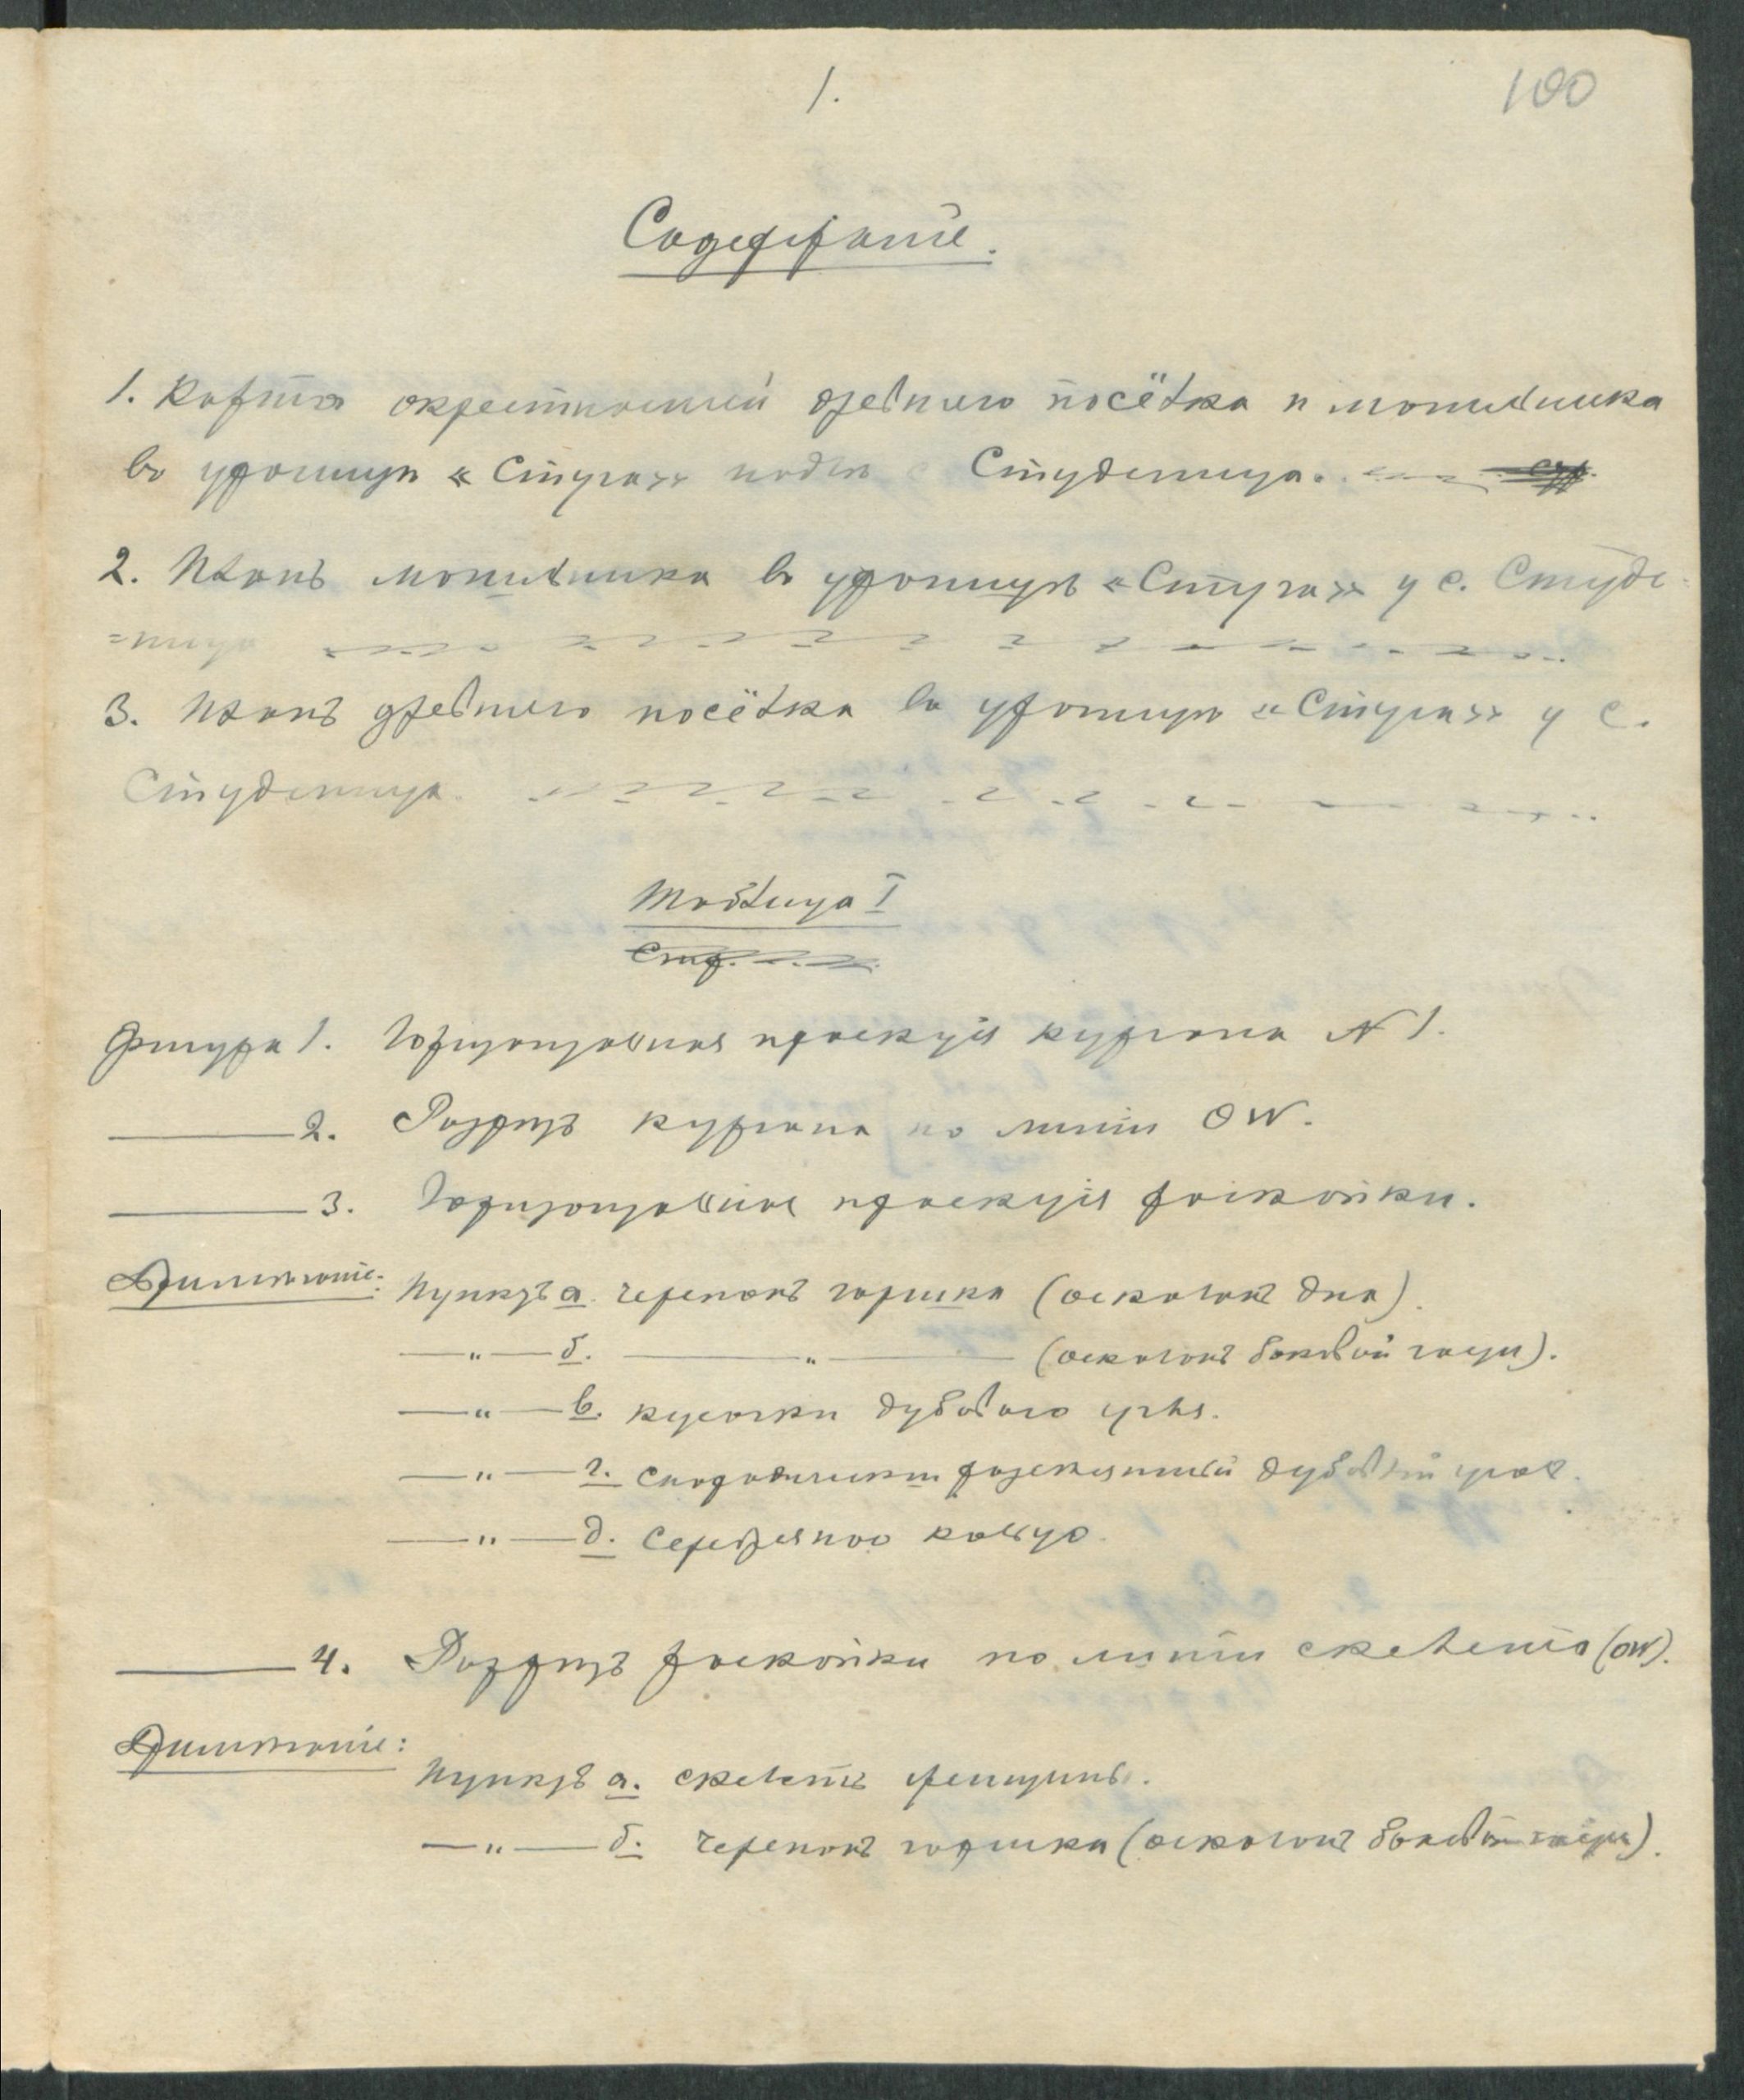 1.
100
Содержаніе.
1. Карта окрестностей древняго посёлка и могильника
въ урочищѣ «Стуга» подлѣ с Студеница.
2. Планъ могильника въ урочищѣ «Стуга» у с. Студе-
=ница
3. Планъ древняго посёлка въ урочищѣ «Стуга» у с.
Студеница.
Таблица I
Стр.
Фигура 1. Горизонтальная проекція кургана № 1.
2. Разрѣзъ кургана по линіи OW.
3. Горизонтальная проекція раскопки.
Примѣчаніе: Пунктъ а. черепокъ горшка (осколокъ дна).
—„— б. —„— (осколокъ боковой части).
—„— в. кусочки дубоваго угля.
—„— г. спорадически разсеянный дубовый уголь.
—„— д. Серебряное кольцо.
4. Разрѣзъ раскопки по линіи скелета (OW).
Примѣчаніе:
Пунктъ а. скелетъ женщины.
—„— б. черепокъ горшка (осколокъ боковой части).